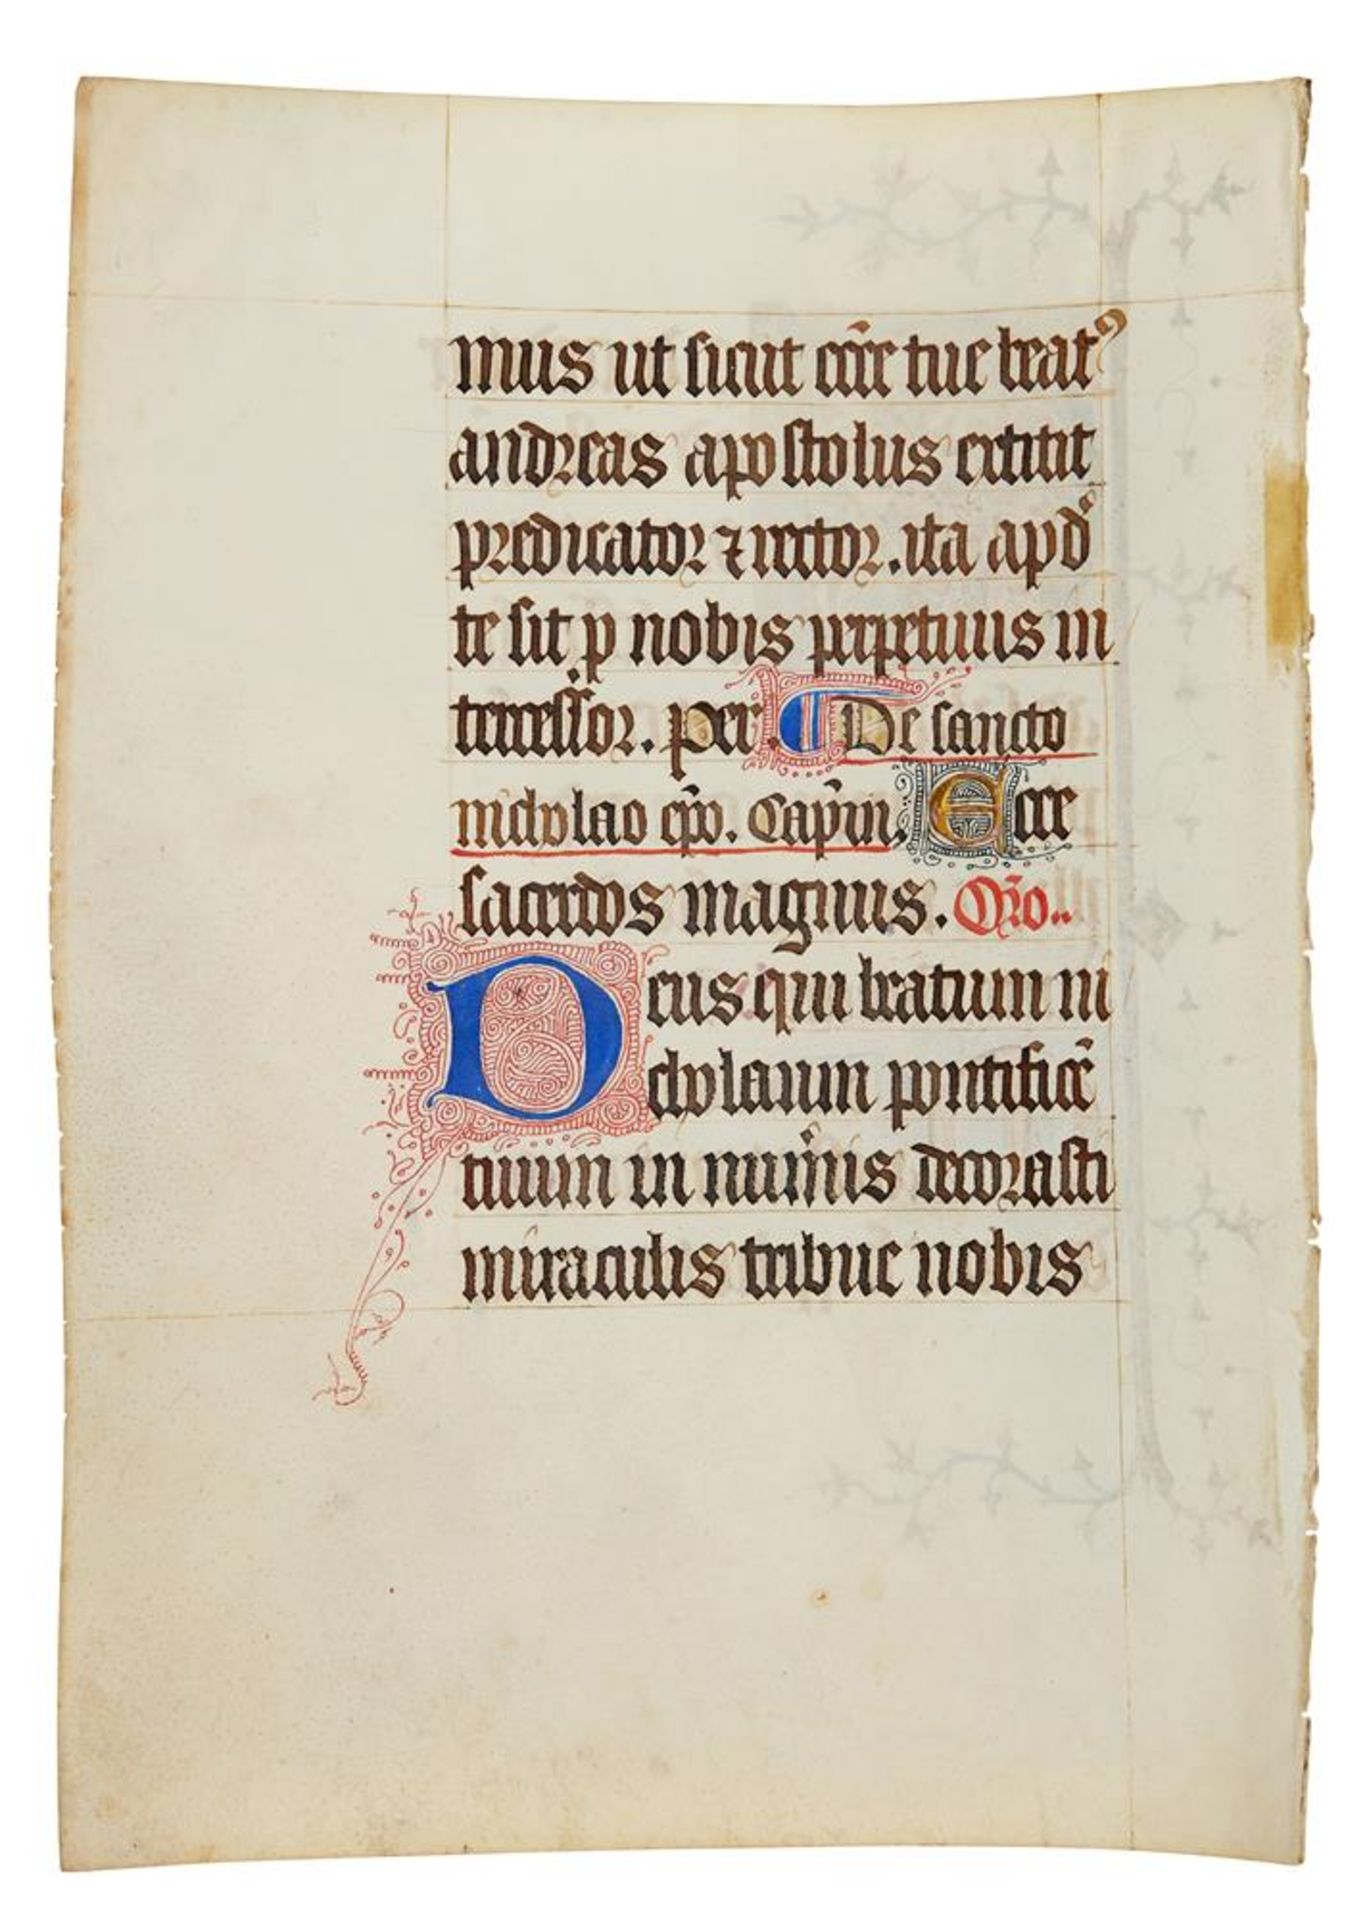 mus ut sicut ecc̄e tue beatꝰ
andreas apostolus extitit
predicator ⁊ rector. ita apd̾
te sit ꝑ nobis perpetuus in
tercessor. per. De sancto
nicholao ep̄o. Capm̄. Ecce
sacerdos magnus. Or̄o..
Deus qui beatum ni
cholaum pontificē
tuum in num̾is decorasti
miraculis tribue nobis